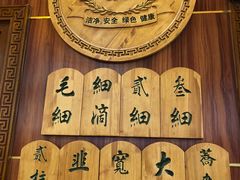 洁净 安全 绿色 健康
毛細
細滴
貳細
叁細
貳柱
韭
寬
大
蕎